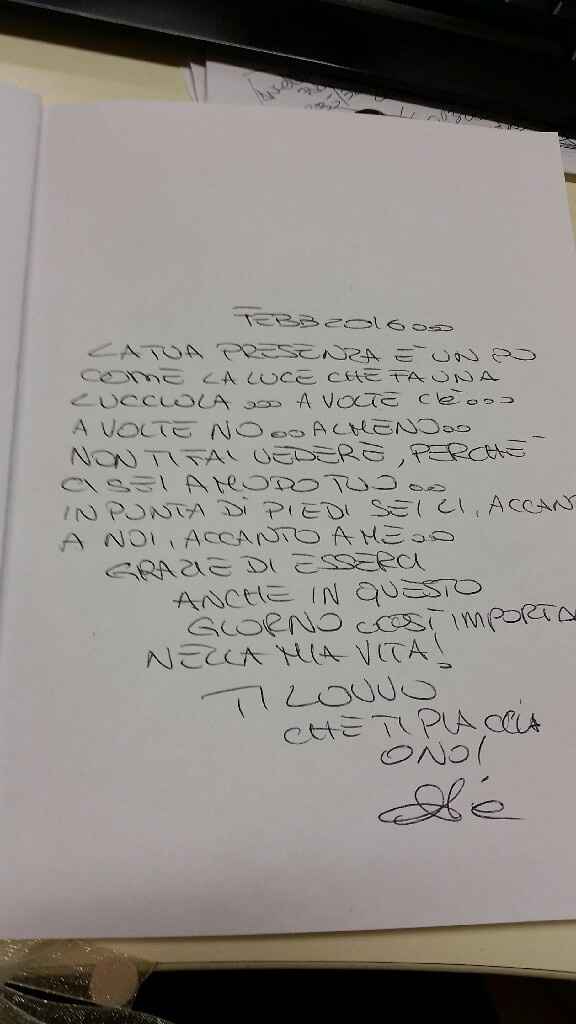 FEBB 2016...
LA TUA PRESENZA E' UN PO
COME LA LUCE CHE FA UNA
LUCCIOLA ... A VOLTE C'È ...
A VOLTE NO .. ALMENO ..
NON TI FAI VEDERE, PERCHÈ
CI SEI A MODO TUO ..
IN PUNTA DI PIEDI SEI LI, ACCANT
A NOI, ACCANTO A ME ..
GRAZIE DI ESSERCI
ANCHE IN QUESTO
GIORNO COSÌ IMPORTA
NELLA MIA VITA!
TI LOVVO
CHE TI PIACCIA
O NO!